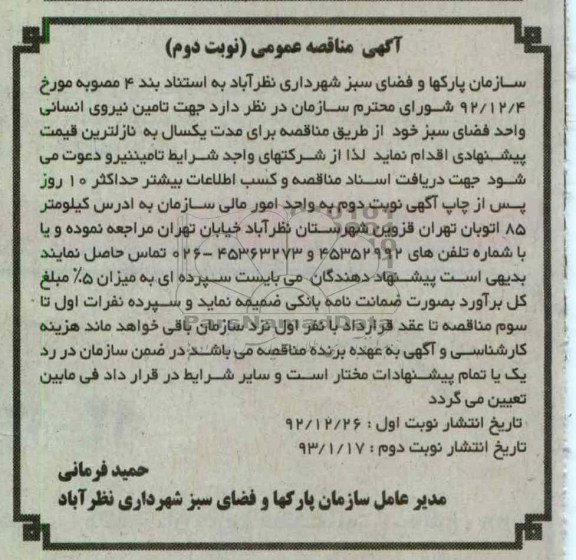 آگهی مناقصه عمومی (نوبت دوم)
سازمان پارکها و فضای سبز شهرداری نظرآباد به استناد بند ۴ مصوبه مورخ
۹۲/۱۲/۴ شورای محترم سازمان در نظر دارد جهت تامین نیروی انسانی
واحد فضای سبز خود از طریق مناقصه برای مدت یکسال به نازلترین قیمت
پیشنهادی اقدام نماید لذا از شرکتهای واجد شرایط تامیننیرو دعوت می
شود جهت دریافت اسناد مناقصه و کسب اطلاعات بیشتر حداکثر ۱۰ روز
پس از چاپ آگهی نوبت دوم به واحد امور مالی سازمان به ادرس کیلومتر
۸۵ اتوبان تهران قزوین شهرستان نظرآباد خیابان تهران مراجعه نموده و یا
با شماره تلفن های ۴۵۳۵۲۹۹۲ و ۴۵۳۶۳۲۷۳ -۰۲۶ تماس حاصل نمایند
بدیهی است پیشنهاد دهندگان می بایست سپرده ای به میزان ۵٪ مبلغ
کل برآورد بصورت ضمانت نامه بانکی ضمیمه نماید و سپرده نفرات اول تا
سوم مناقصه تا عقد قرارداد با نفر اول نزد سازمان باقی خواهد ماند هزینه
کارشناسی و آگهی به عهده برنده مناقصه می باشد در ضمن سازمان در رد
یک یا تمام پیشنهادات مختار است و سایر شرایط در قرار داد فی مابین
تعیین می گردد
تاریخ انتشار نوبت اول : ۹۲/۱۲/۲۶
تاریخ انتشار نوبت دوم : ۹۳/۱/۱۷
حمید فرمانی
مدیر عامل سازمان پارکها و فضای سبز شهرداری نظرآباد